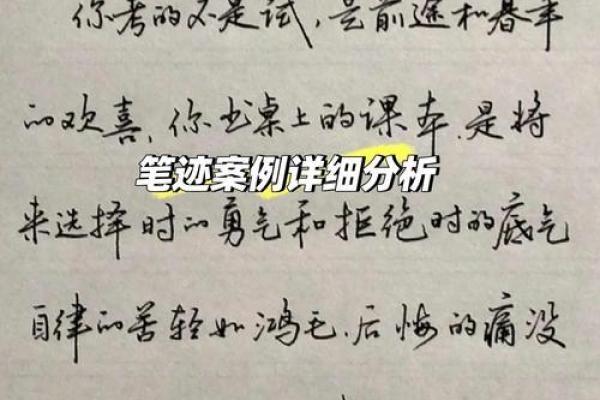 你考的不是试,是前途和暮年
的欢喜,你书桌上的课本,是将
笔迹案例详细分析
来选择时的勇气和拒绝时的底气
自律的苦轻如鸿毛,后悔的痛没